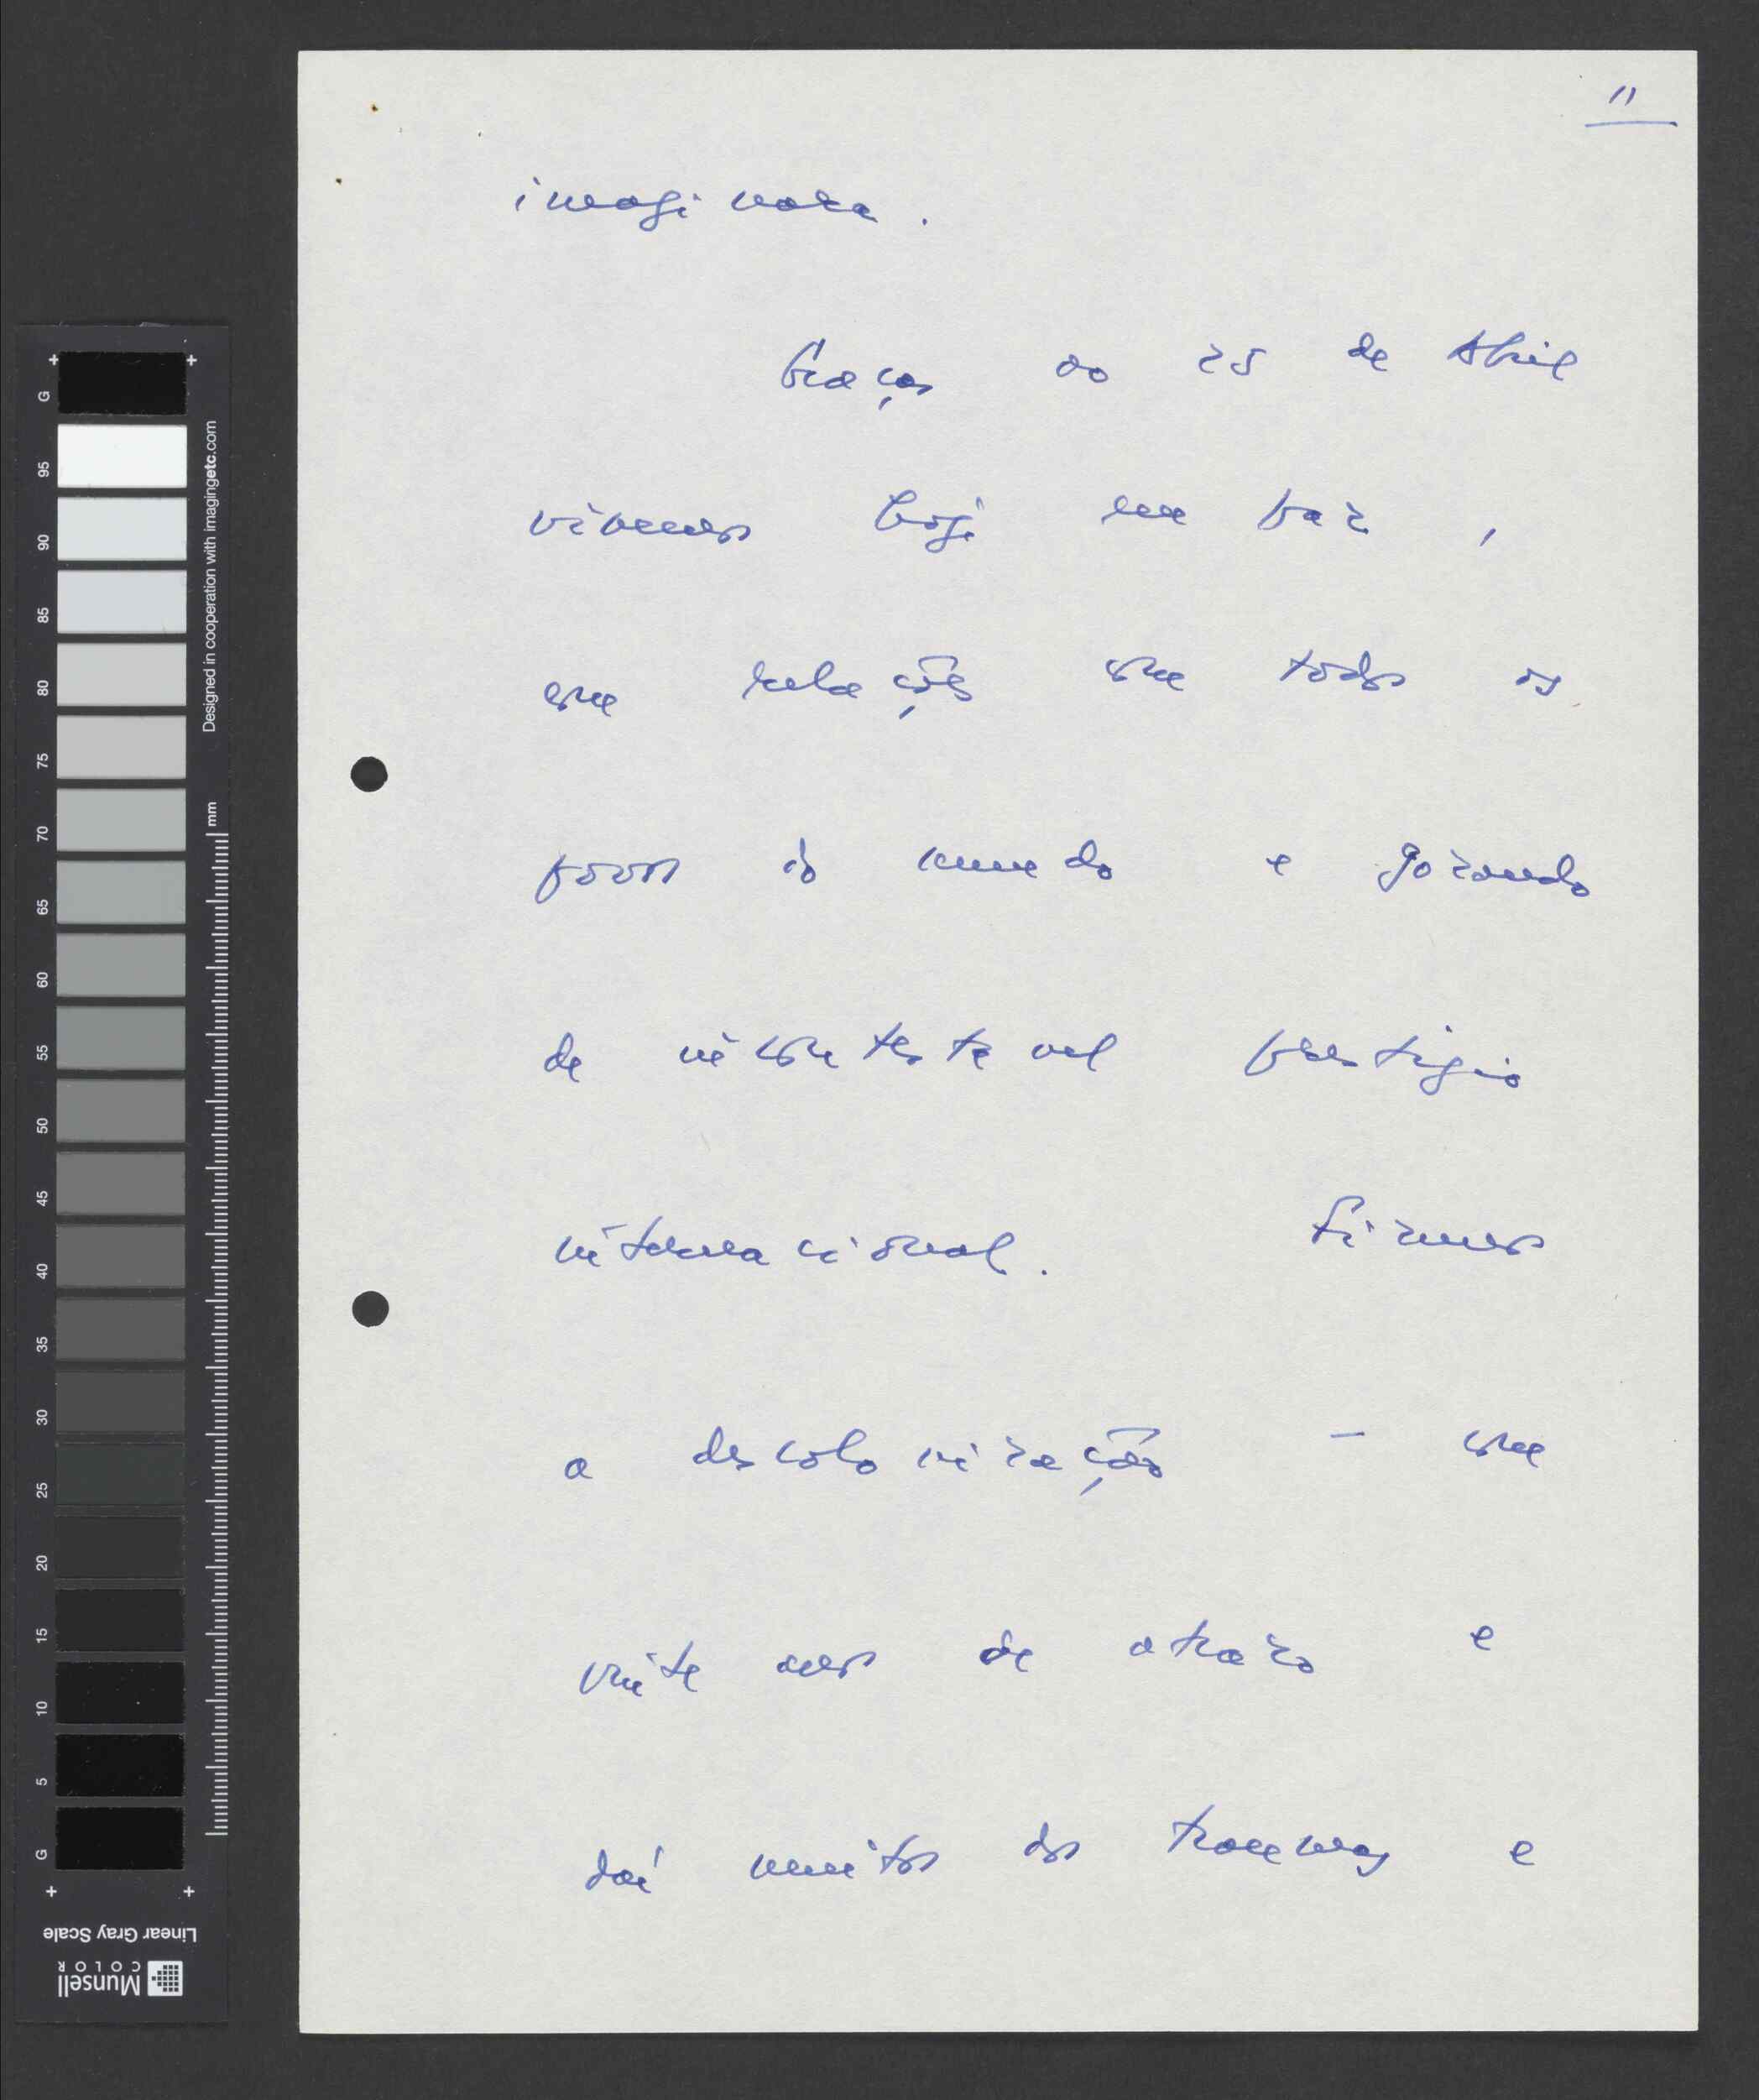 11
imaginara.
Graças ao 25 de Abril
vivemos hoje em paz,
com relações com todos os
povos do mundo e gozando
de incontestável prestígio
internacional. Fizemos
a descolonização – com
vinte anos de atrazo e
daí muitos dos traumas e
G
95
90
85
80
75
70
65
60
55
50
45
40
35
30
25
20
15
10
5
G
Designed in cooperation with imagingetc.com
mm
Linear Gray Scale
Munsell
COLOR